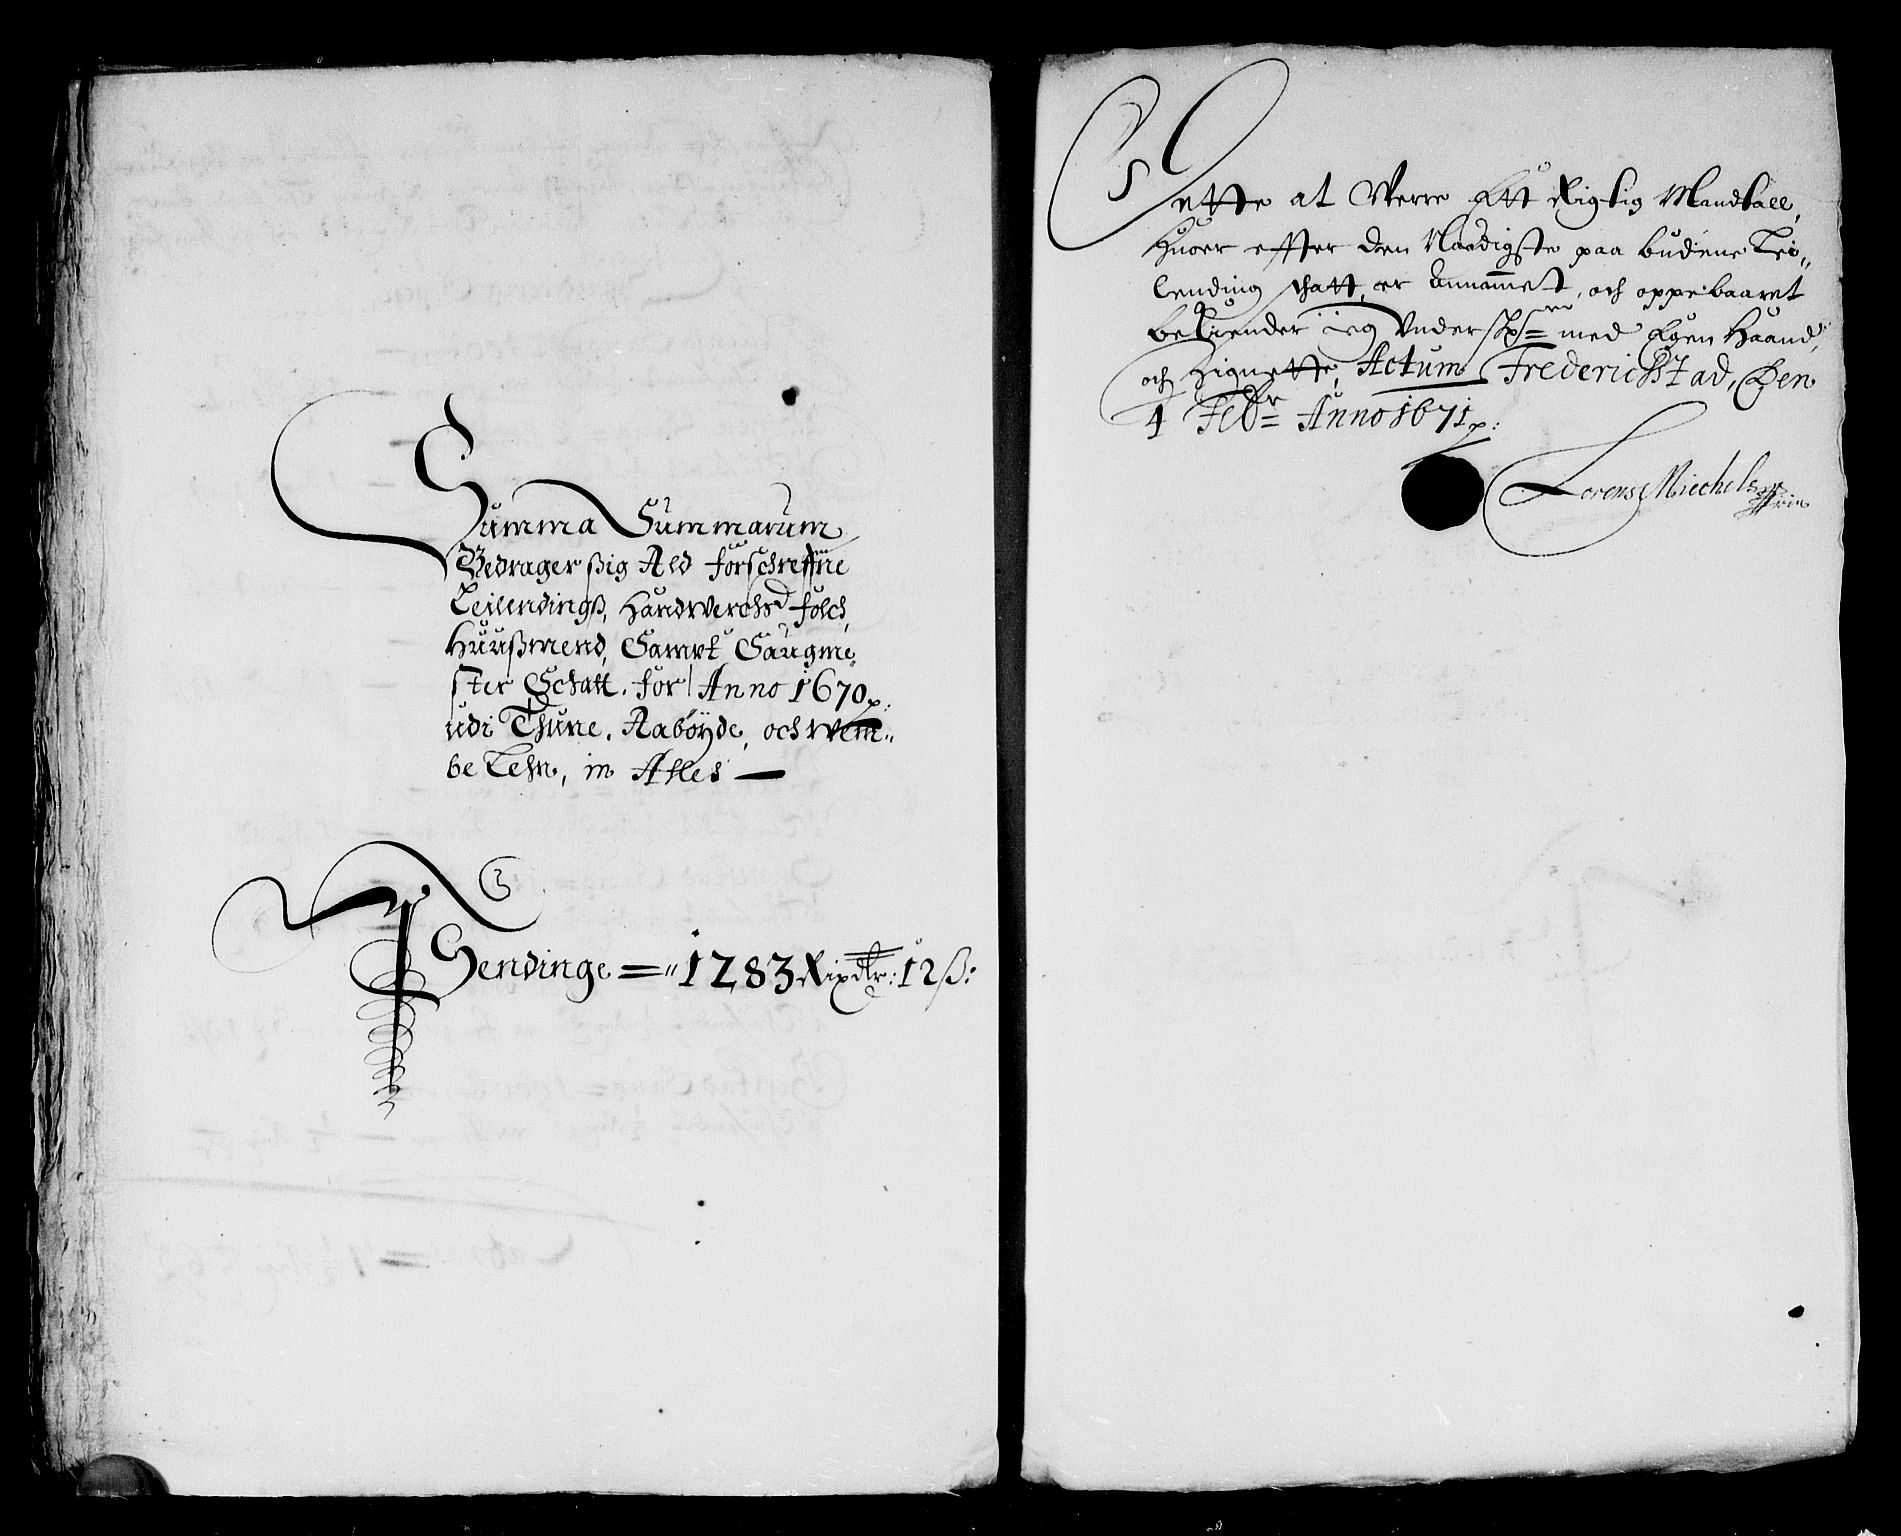 Summa Summarum
Bedrager ßig Ald forschrefne
Leilendingß, Handwerchs folch,
Huußmend, Sampt Saugme„
ster Schatt. for Anno 1670
udi Thune, Aaböyde, och Wem„
be Lehn, in Alles —
Sendinge = „ 1283 Rixdlr: 12 ß:
Dette at Verre Ett Rigtig Mandtall,
Huor efter den Naadigste paa budene Lei„
lending schatt, er Annammet, och oppebaaret
bekiender ieg Under med Egen Haand,
och Zignette, Actum Friderichstad, Den
4 Febr Anno 1671
Lorens Miechels